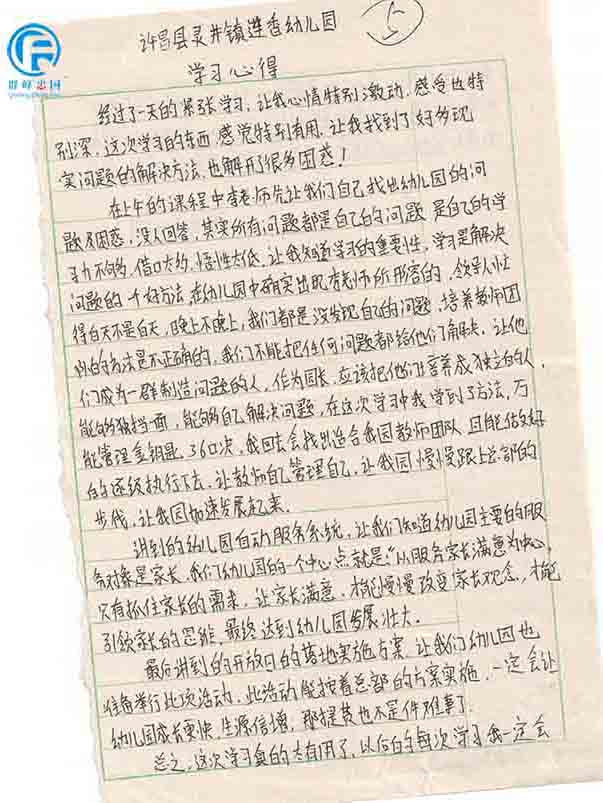 群峰忠网
许昌县灵井镇莲香幼儿园
5
学习心得
经过了一天的紧张学习,让我心情特别激动,感受也特
别深,这次学习的东西感觉特别有用,让我找到了好多现
实问题的解决方法,也解开了很多困惑!
在上午的课程中李老师先让我们自己找出幼儿园的问
题及困惑,没人回答,其实所有问题都是自己的问题 是自己的学
习力不够,借口太多,悟性太低,让我知道学习的重要性,学习是解决
问题的一个好方法,在幼儿园中确实出现李老师所形容的,领导人忙
得白天不是白天,晚上不晚上,我们都是没发现自己的问题,培养教师团
队的方法是不正确的,我们不能把任何问题都给他们解决,让他
们成为一群制造问题的人,作为园长,应该把他们培养成独立的人
能够独挡一面,能够自己解决问题,在这次学习中我学到了方法,万
能管理金钥匙,360决,我回去会找出适合我园教师团队 且能做好
的连续执行下去,让教师自己管理自己,让我园慢慢跟上总部的
步伐,让我园加速发展起来.
讲到的幼儿园自动服务系统,让我们知道幼儿园主要的服
务对象是家长,我们幼儿园的一个中心点就是“以服务家长满意为中心,
只有抓住家长的需求,让家长满意,才能慢慢改变家长观念,才能
引领家长的思维,最终达到幼儿园发展壮大.
最后讲到的开放日的落地实施方案,让我们幼儿园也
准备举行此项活动,此活动能按着总部的方案实施,一定会让
幼儿园成长更快,生源倍增,那提费也不是件难事了.
总之,这次学习真的太有用了,以后的每次学习我一定会